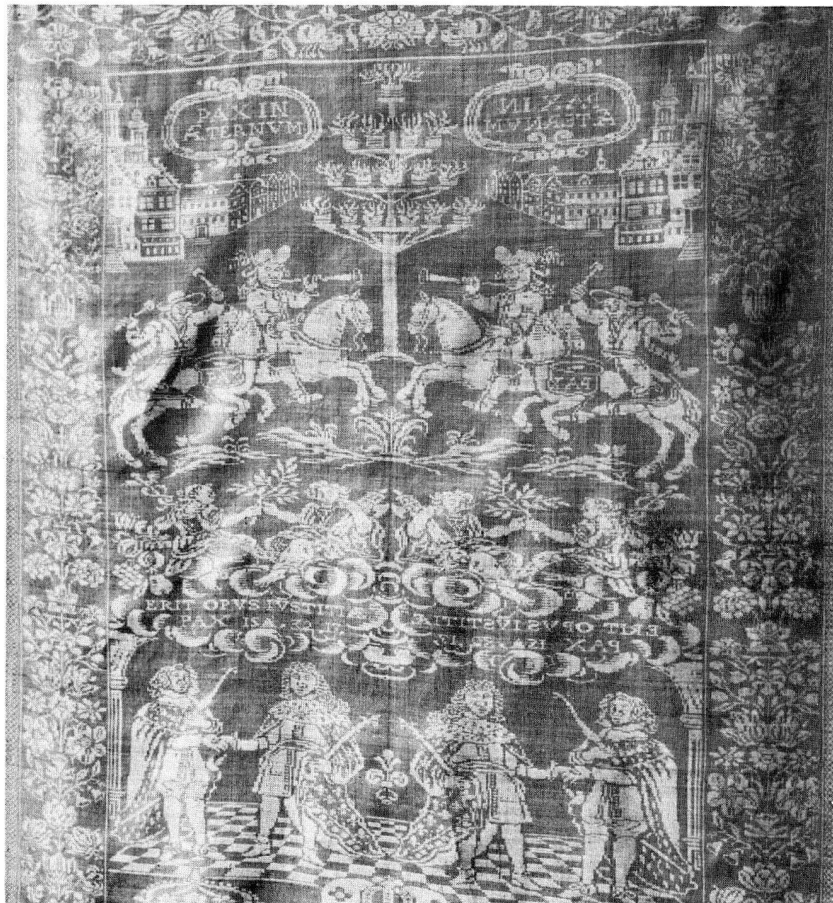 PAX IN
ÆTERNVM
PAX IN
ÆTERNVM
PAX
ERIT OPVS IVSTITIÆ
PAX ISA
ERIT OPVS IVSTITIÆ
PAX ISA